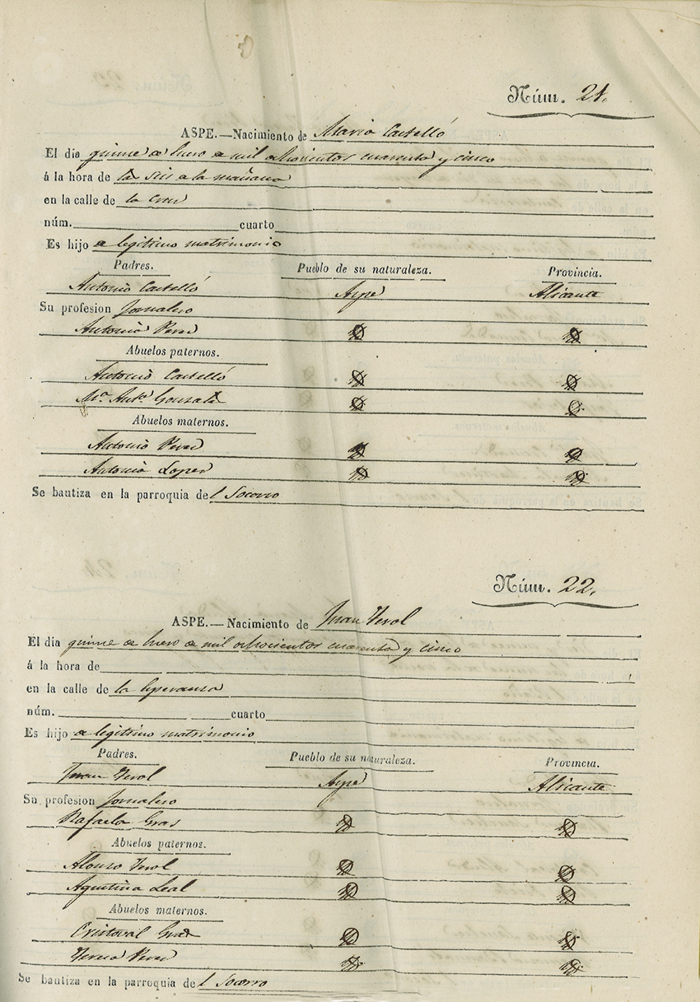 Núm. 21.
ASPE.—Nacimiento de Maria Castelló
El dia quince de Enero de mil ochocientos cuarenta y cinco
á la hora de las seis de la mañana
en la calle de la Cruz
núm. cuarto
Es hijo de legitimo matrimonio
Padres. Pueblo de su naturaleza. Provincia.
Antonio Castelló Aspe Alicante
Su profesion Jornalero
Antonia Perez
Abuelos paternos.
Antonio Castelló
Mª. Antª. Gonzalez
Abuelos maternos.
Antonio Perez
Antonia Lopez
Se bautiza en la parroquia del Socorro
Núm. 22.
ASPE.—Nacimiento de Juan
El dia quince de Enero de mil ochocientos cuarenta y cinco
á la hora de
en la calle de la Esperanza
núm. cuarto
Es hijo de legitimo matrimonio
Padres. Pueblo de su naturaleza. Provincia.
Juan Aspe Alicante
Su profesion Jornalero
Rafaela Gras
Abuelos paternos.
Alonso
Agustina Leal
Abuelos maternos.
Cristoval Gras
Teresa Perez
Se bautiza en la parroquia del Socorro